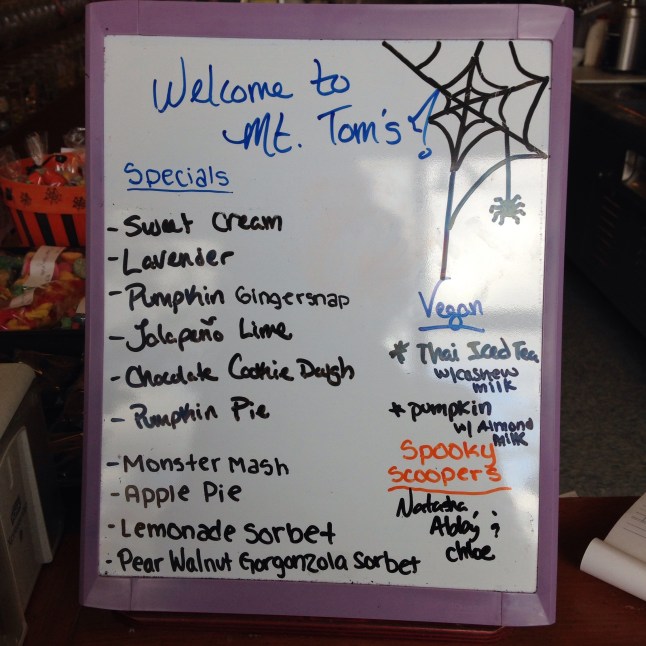 Welcome to
Mt. Tom's!
Specials
- Sweet Cream
- Lavender
- Pumpkin Gingersnap
- Jalapeño Lime
- Chocolate Cookie Dough
- Pumpkin Pie
- Monster Mash
- Apple Pie
- Lemonade Sorbet
- Pear Walnut Gorgonzola Sorbet
Vegan
* Thai Iced Tea
w/cashew
milk
* pumpkin
w/ Almond
Milk
Spooky
Scoopers
Natasha,
Abby, &
Chloe